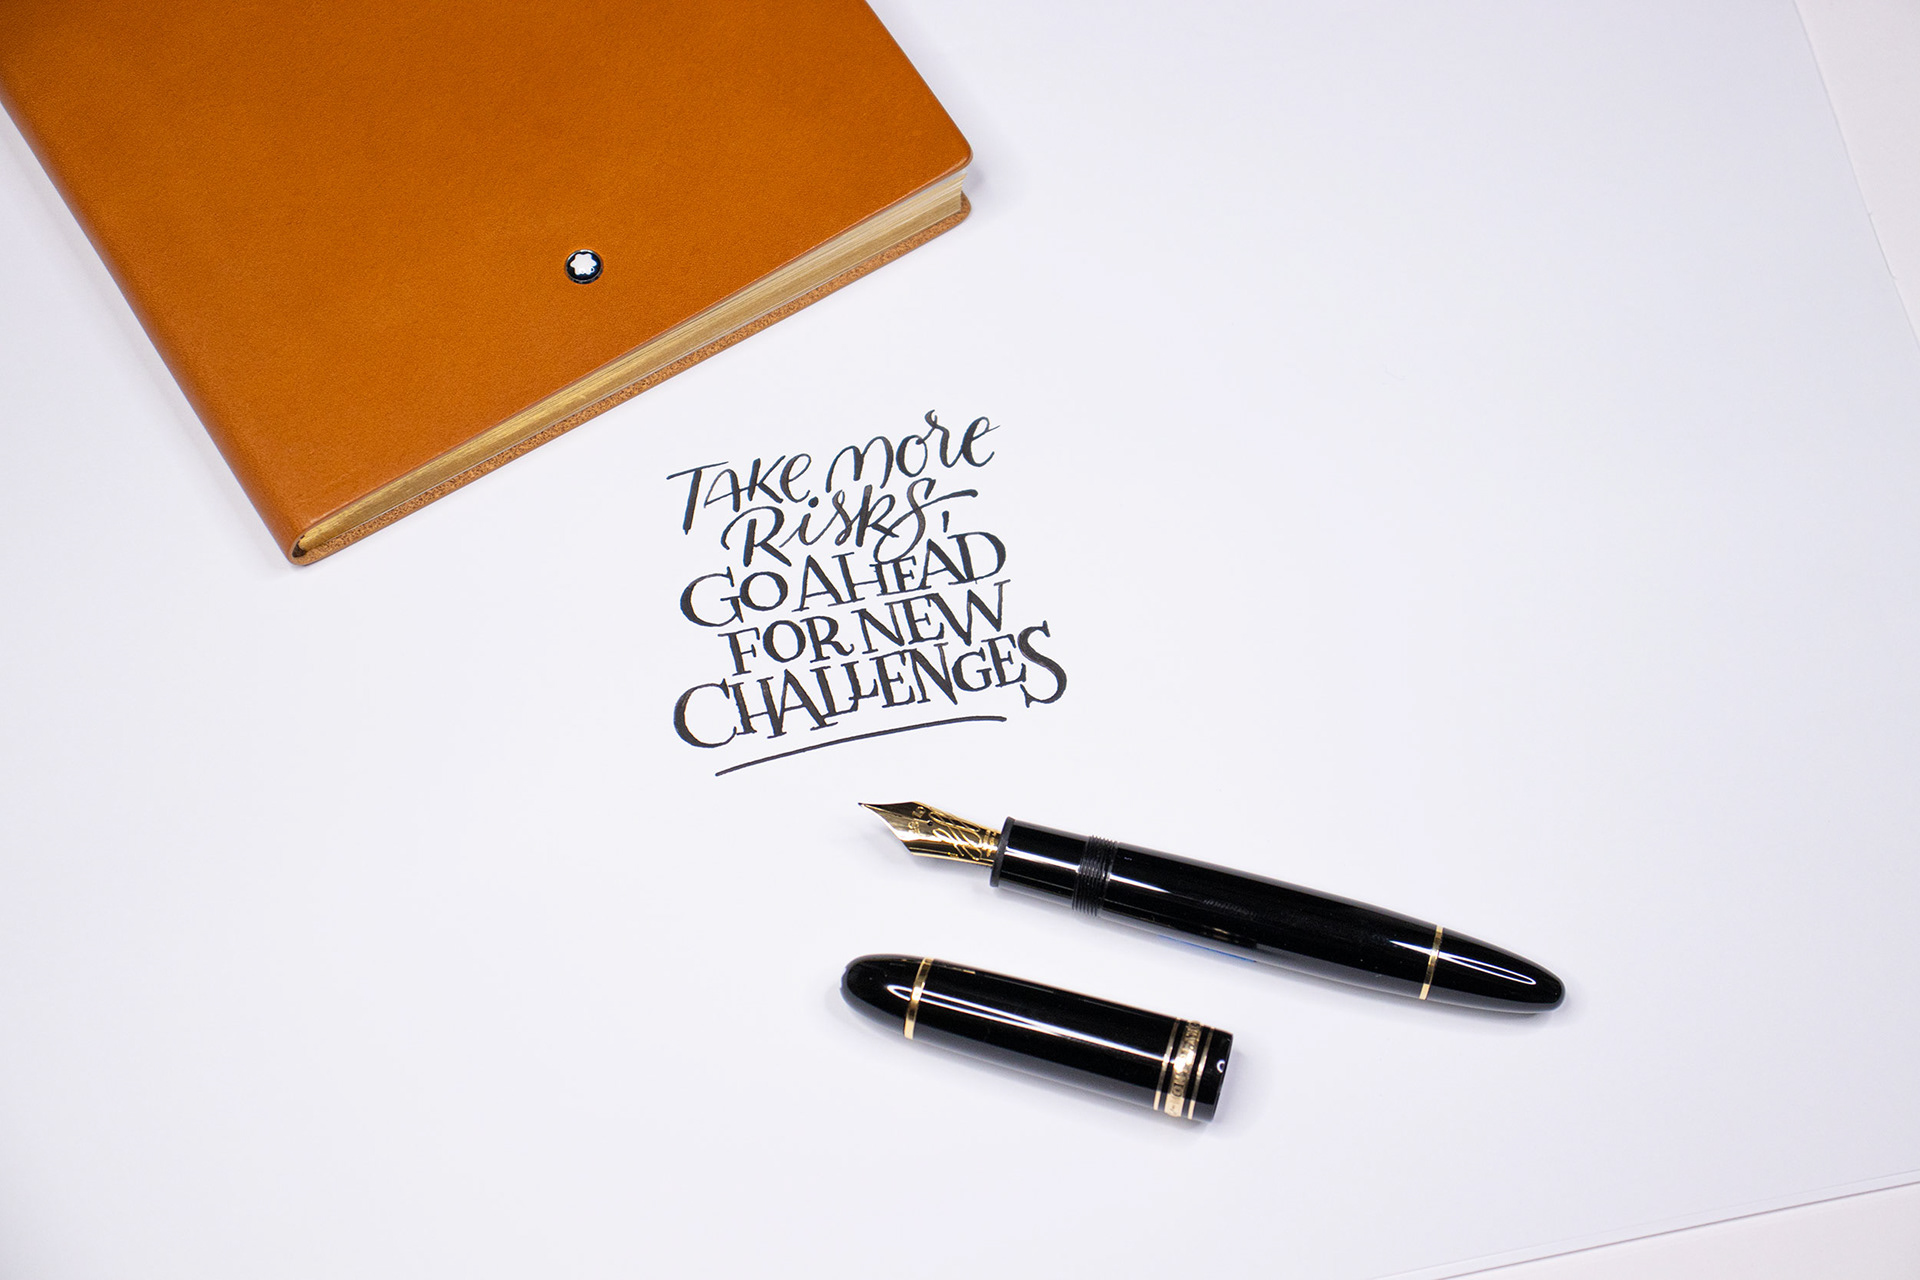 Take more
Risks,
GO AHEAD
FOR NEW
CHALLENGES